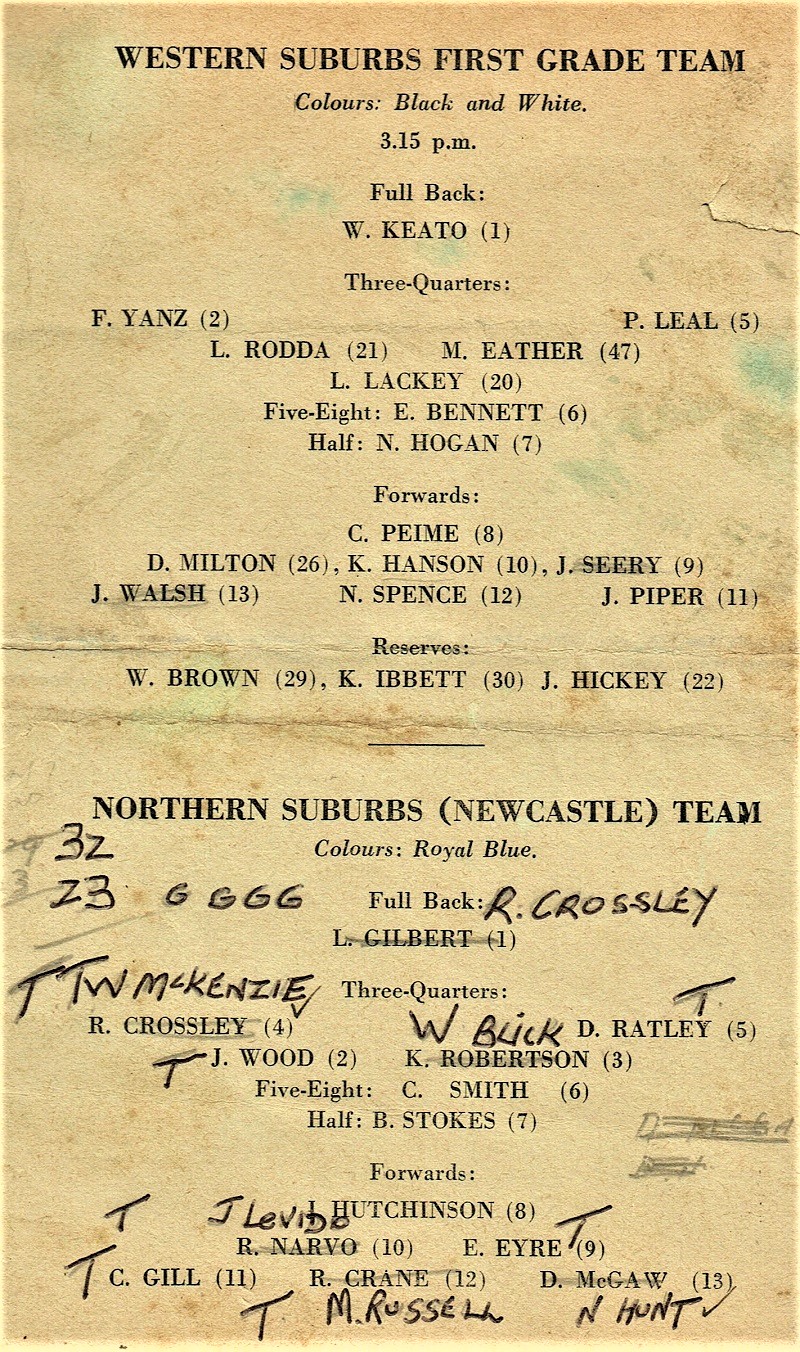 WESTERN SUBURBS FIRST GRADE TEAM
Colours: Black and White.
3.15 p.m.
Full Back:
W. KEATO (1)
Three-Quarters:
F. YANZ (2) P. LEAL (5)
L. RODDA (21) M. EATHER (47)
L. LACKEY (20)
Five-Eight: E. BENNETT (6)
Half: N. HOGAN (7)
Forwards:
C. PEIME (8)
D. MILTON (26), K. HANSON (10), J. SEERY (9)
J. WALSH (13) N. SPENCE (12) J. PIPER (11)
Reserves:
W. BROWN (29), K. IBBETT (30) J. HICKEY (22)
NORTHERN SUBURBS (NEWCASTLE) TEAM
32 Colours: Royal Blue.
23 G G G G Full Back: R. CROSSLEY
L. GILBERT (1)
T T W McKENZIE Three-Quarters: T
R. CROSSLEY (4) W BLICK D. RATLEY (5)
T J. WOOD (2) K. ROBERTSON (3)
Five-Eight: C. SMITH (6)
Half: B. STOKES (7)
Forwards:
T J LEVIDO J. HUTCHINSON (8) T
R. NARVO (10) E. EYRE (9)
T C. GILL (11) R. CRANE (12) D. McGAW (13)
T M. RUSSELL N HUNT